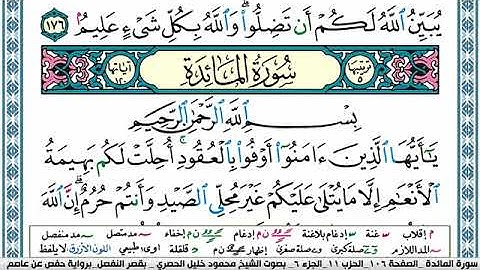 يُبَيِّنُ ٱللَّهُ لَكُمْ أَن تَضِلُّوا۟ ۗ وَٱللَّهُ بِكُلِّ شَىْءٍ عَلِيمٌۢ ١٧٦
ترتيبها ٥ سُورَةُ المَائِدَةِ آياتها ١٢٠
بِسْمِ ٱللَّهِ ٱلرَّحْمَٰنِ ٱلرَّحِيمِ
يَٰٓأَيُّهَا ٱلَّذِينَ ءَامَنُوٓا۟ أَوْفُوا۟ بِٱلْعُقُودِ ۚ أُحِلَّتْ لَكُم بَهِيمَةُ
ٱلْأَنْعَٰمِ إِلَّا مَا يُتْلَىٰ عَلَيْكُمْ غَيْرَ مُحِلِّى ٱلصَّيْدِ وَأَنتُمْ حُرُمٌ ۗ إِنَّ ٱللَّهَ
م إقلاب س غنة س إدغام بلاغنة ن م إدغام ن م إخفاء مد متصل مد منفصل
المد اللازم صلة كبرى وصلة صغرى ن م إظهار قلقلة اوى طبيعي اللون الأزرق لا يلفظ
سورة المائدة _ الصفحة ١٠٦ _ الحزب ١١ _ الجزء ٦ _ بصوت الشيخ محمود خليل الحصري _ بقصر المنفصل _ برواية حفص عن عاصم